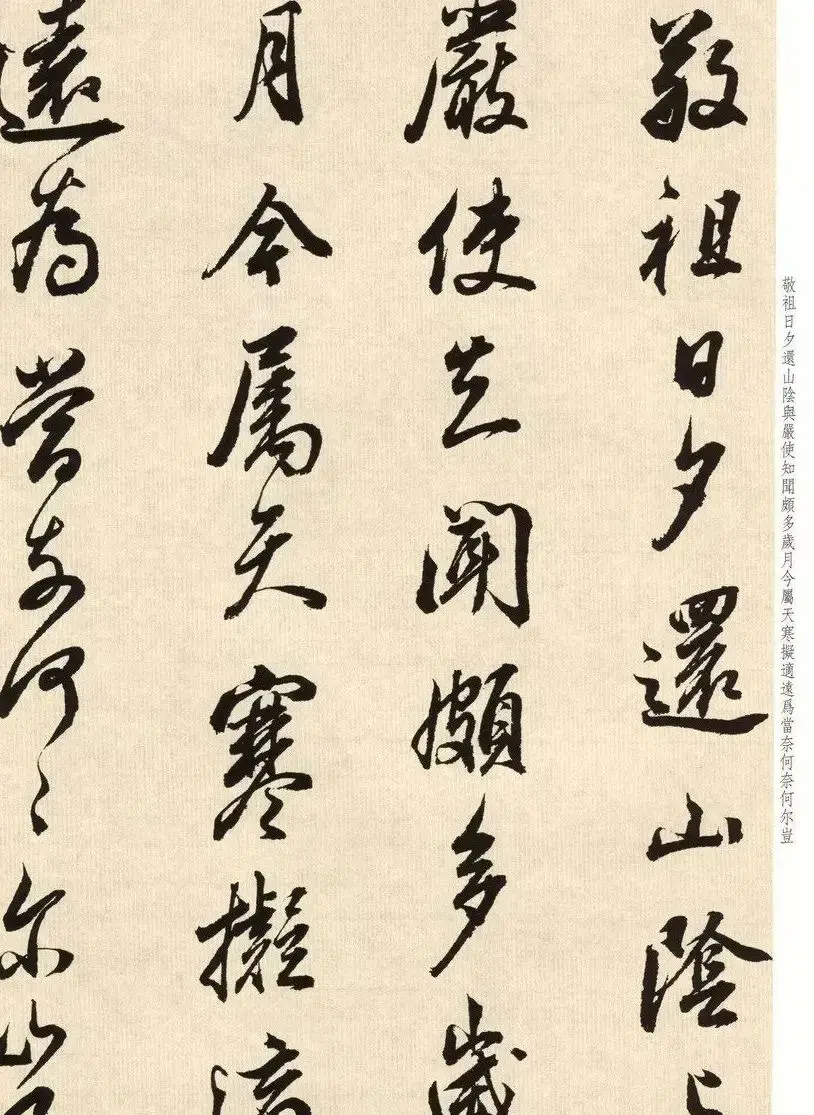 敬祖日夕還山陰與
嚴使知聞頗多歲
月今屬天寒擬適
遠爲當奈何奈何尔豈
敬祖日夕還山陰與嚴使知聞頗多歲月今屬天寒擬適遠爲當奈何奈何尔豈